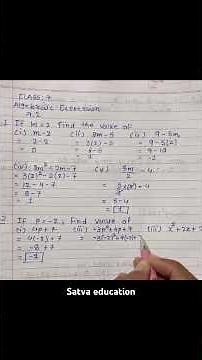 CLASS: 7
Algebraic Expression
1 If m = 2, find the value of
(i) m-2 (ii) 3m-5 (iii) 9-5m
= 2-2 = 3(2)-5 = 9-5(2)
= 0 = 6-5 = 9-10
= 1 = -1
(iv) 3m²-2m-7 (v) 5m/2 - 4
= 3(2)²-2(2)-7 = 5/2 x(2) - 4
= 12-4-7
= 8-7 = 5-4
= 1 = 1
2 If p = -2, find value of
(i) 4p+7 (ii) -3p²+4p+7 (iii)
= 4(-2)+7 = -3(-2)²+4(-2)+
= -8+7
= -1
Satva education